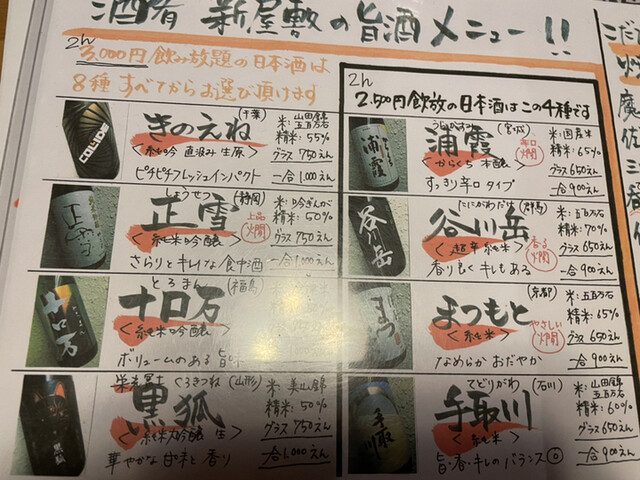 酒肴 新屋敷の旨酒メニュー!!
2h
3,000円飲み放題の日本酒は
8種すべてからお選び頂けます
(千葉)
きのえね
<純吟 直汲み 生原>
ピチピチフレッシュインパクト
米:山田錦
五百万石
精米:55%
グラス750えん
一合1,000えん
しょうせつ
(静岡)
正雪
<純米吟醸>
上品
燗
さらりとキレイな食中酒
米:吟ぎんが
精米:50%
グラス750えん
一合1,000えん
とろまん
(福島)
十口万
<純米吟醸>
ボリュームのある旨味
栄光冨士 くろきつね (山形)
黒狐
<純米大吟醸 生>
華やかな甘味と香り
米:美山錦
精米:50%
グラス750えん
一合1,000えん
2h
2,500円飲放の日本酒はこの4種です
うらがすみ
(宮城)
浦霞
<からくち 本醸>
辛口
燗
すっきり辛口タイプ
米:国産米
精米:65%
グラス650えん
一合900えん
たにがわだけ
(群馬)
谷川岳
<超辛 純米>
香る
燗
香り良くキレもある
米:五百万石
精米:70%
グラス650えん
一合900えん
(京都)
まつもと
<純米>
やさしい
燗
なめらか おだやか
米:五百万石
精米:65%
グラス650えん
一合900えん
てどりがわ
(石川)
手取川
<純米>
旨・香・キレのバランス◎
米:山田錦
五百万石
精米:60%
グラス650えん
一合900えん
こだ